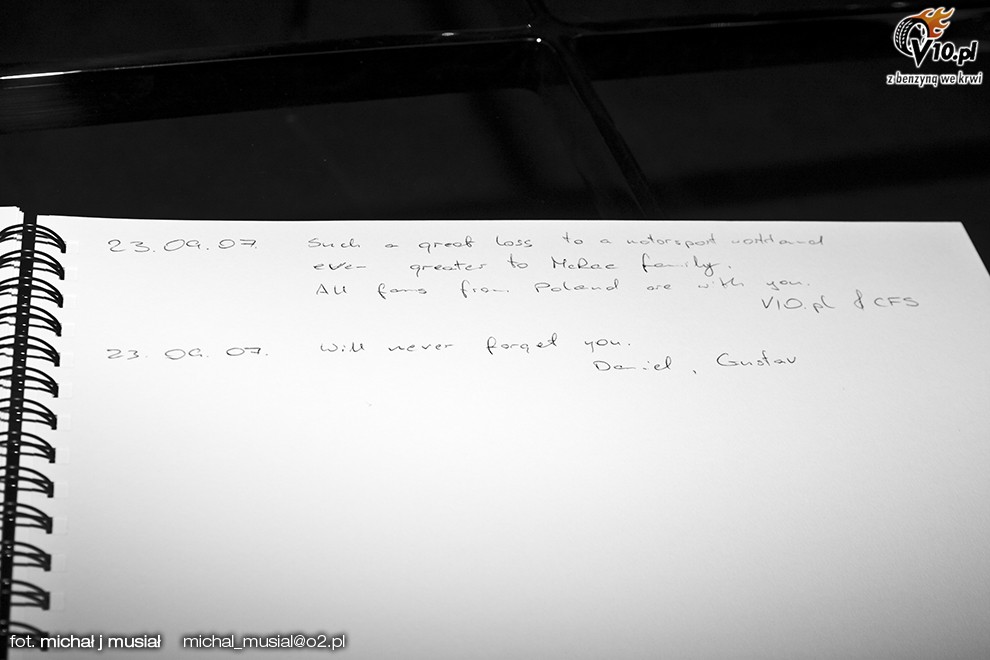 V10.pl
z benzyną we krwi
23.09.07. Such a great loss to a motorsport world and
even greater to McRae family.
All fans from Poland are with you.
V10.pl & CFS
23.09.07. Will never forget you.
Daniel, Gustav
fot. michał j musiał michal_musial@o2.pl